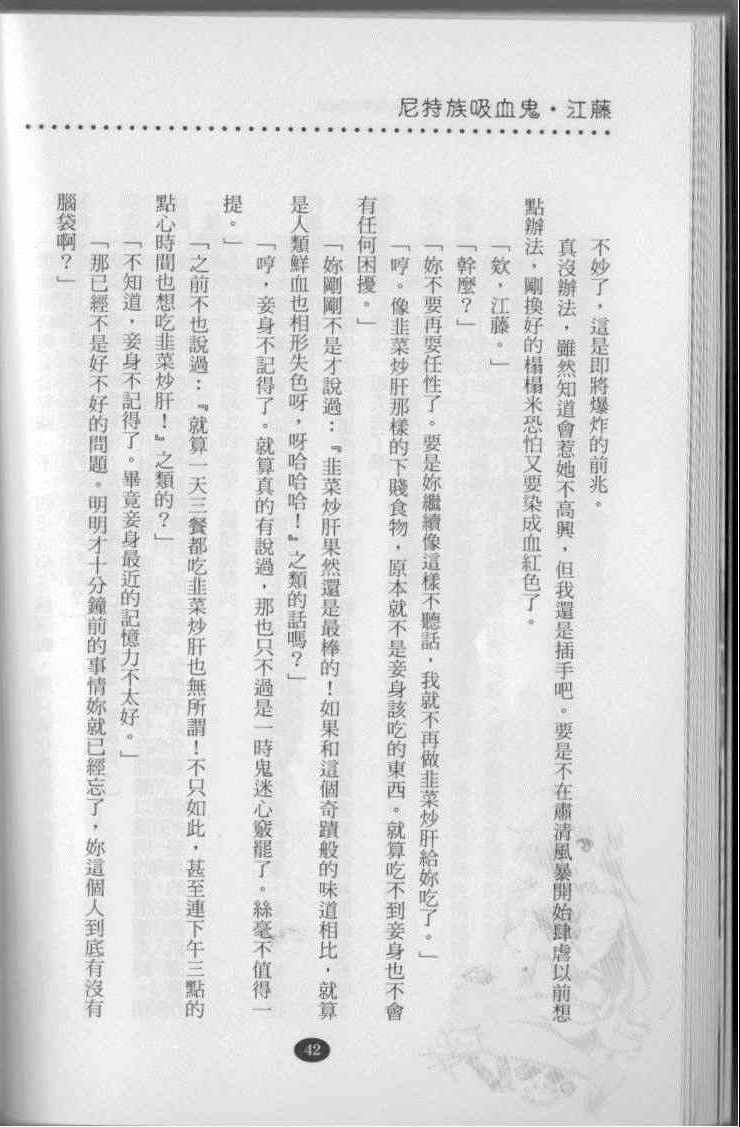 尼特族吸血鬼・江藤
不妙了，這是即將爆炸的前兆。
真沒辦法，雖然知道會惹她不高興，但我還是插手吧。要是不在肅清風暴開始肆虐以前想
點辦法，剛換好的榻榻米恐怕又要染成血紅色了。
「欸，江藤。」
「幹麼？」
「妳不要再耍任性了。要是妳繼續像這樣不聽話，我就不再做韭菜炒肝給妳吃了。」
「哼。像韭菜炒肝那樣的下賤食物，原本就不是妾身該吃的東西。就算吃不到妾身也不會
有任何困擾。」
「妳剛剛不是才說過：『韭菜炒肝果然還是最棒的！如果和這個奇蹟般的味道相比，就算
是人類鮮血也相形失色呀，呀哈哈哈！』之類的話嗎？」
「哼，妾身不記得了。就算真的有說過，那也只不過是一時鬼迷心竅罷了。絲毫不值得一
提。」
「之前不也說過：『就算一天三餐都吃韭菜炒肝也無所謂！不只如此，甚至連下午三點的
點心時間也想吃韭菜炒肝！』之類的？」
「不知道，妾身不記得了。畢竟妾身最近的記憶力不太好。」
「那已經不是好不好的問題。明明才十分鐘前的事情妳就已經忘了，妳這個人到底有沒有
腦袋啊？」
42